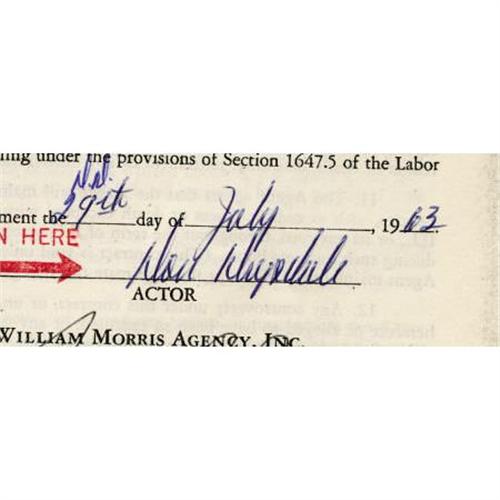 ing under the provisions of Section 1647.5 of the Labor
D.D.
ment the 29th day of July, 1963
N HERE
Don Drysdale
ACTOR
WILLIAM MORRIS AGENCY, INC.